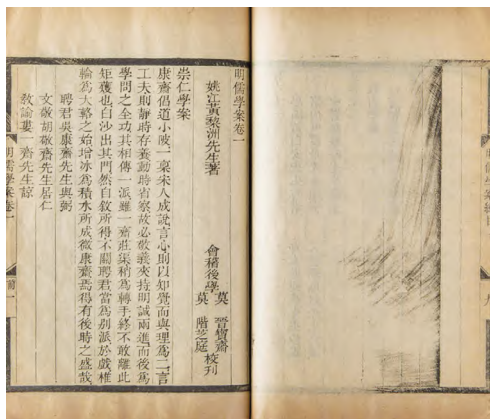 明儒學案卷一
姚江黃梨洲先生著
會稽後學
莫晉寶齋
莫階芝庭
校刊
崇仁學案
康齋倡道小陂一稟宋人成說言心則以知覺而與理爲二言
工夫則靜時存養動時省察故必敬義夾持明誠兩進而後爲
學問之全功其相傳一派雖一齋莊渠稍爲轉手終不敢離此
矩矱也白沙出其門然自敘所得不關聘君當爲別派於戲椎
輪爲大輅之始增冰爲積水所成微康齋焉得有後時之盛哉
聘君吳康齋先生與弼
文敬胡敬齋先生居仁
教諭婁一齋先生諒
明儒學案卷一